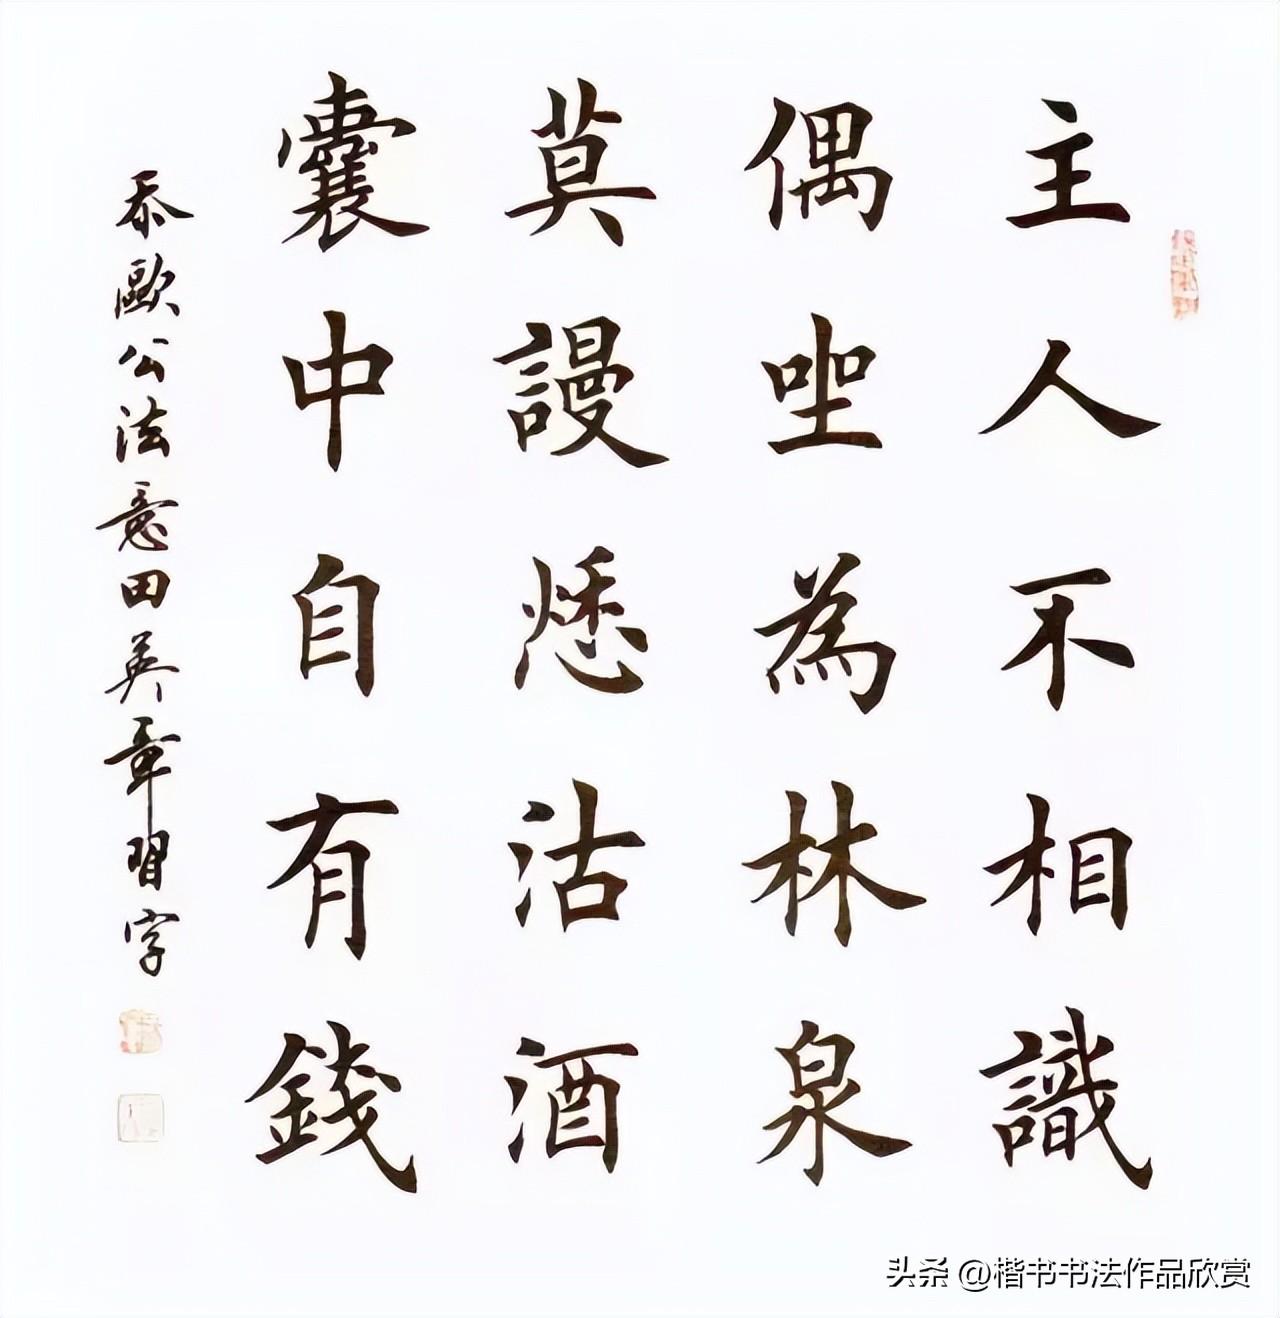 主人不相識
偶坐為林泉
莫謾愁沽酒
囊中自有錢
忝歐公法意田英章習字
头条 @楷书书法作品欣赏